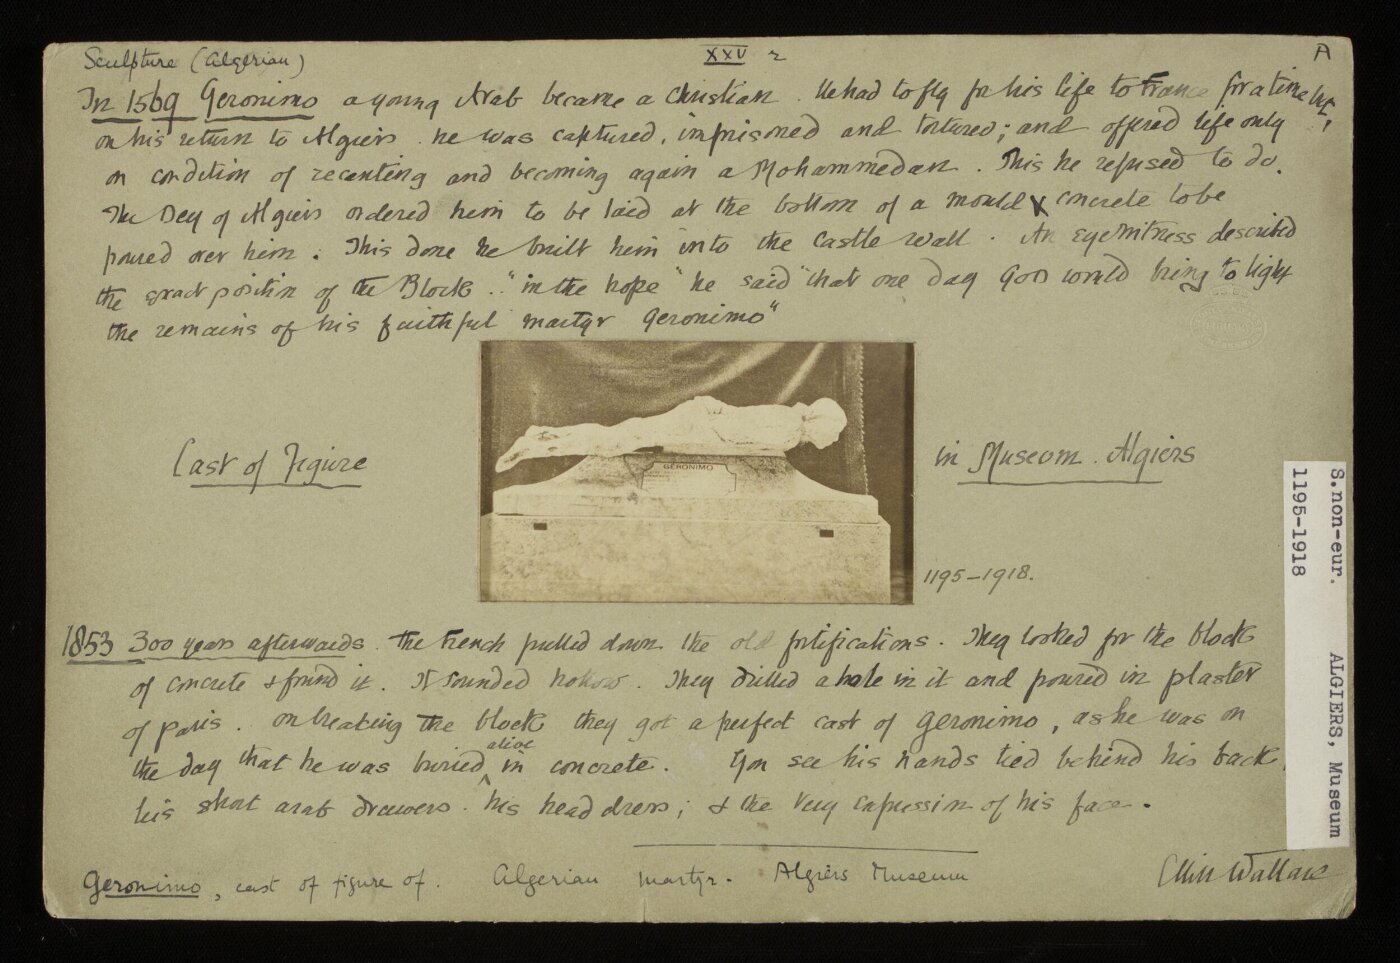 Sculpture (Algerian)
XXV 2
A
In 1569 Geronimo a young Arab became a Christian. He had to fly for his life to France for a time but,
on his return to Algiers he was captured, imprisoned and tortured; and offered life only
on condition of recanting and becoming again a Mohammedan. This he refused to do.
The Dey of Algiers ordered him to be laid at the bottom of a mould & concrete to be
poured over him. This done he built him into the castle wall. An eyewitness described
the exact position of the Block. "in the hope" he said "that one day God would bring to light
the remains of his faithful martyr Geronimo"
Cast of Figure
GÉRONIMO
in Museum. Algiers
1195-1918.
1853 300 years afterwards the French pulled down the old fortifications. They looked for the block
of concrete & found it. It sounded hollow. They drilled a hole in it and poured in plaster
of paris. on breaking the block they got a perfect cast of Geronimo, as he was on
the day that he was buried alive in concrete. You see his hands tied behind his back,
his short arab drawers. his head dress; & the very expression of his face.
Geronimo, cast of figure of. Algerian martyr. Algiers Museum
Wallace
S.non-eur. ALGIERS, Museum
1195-1918